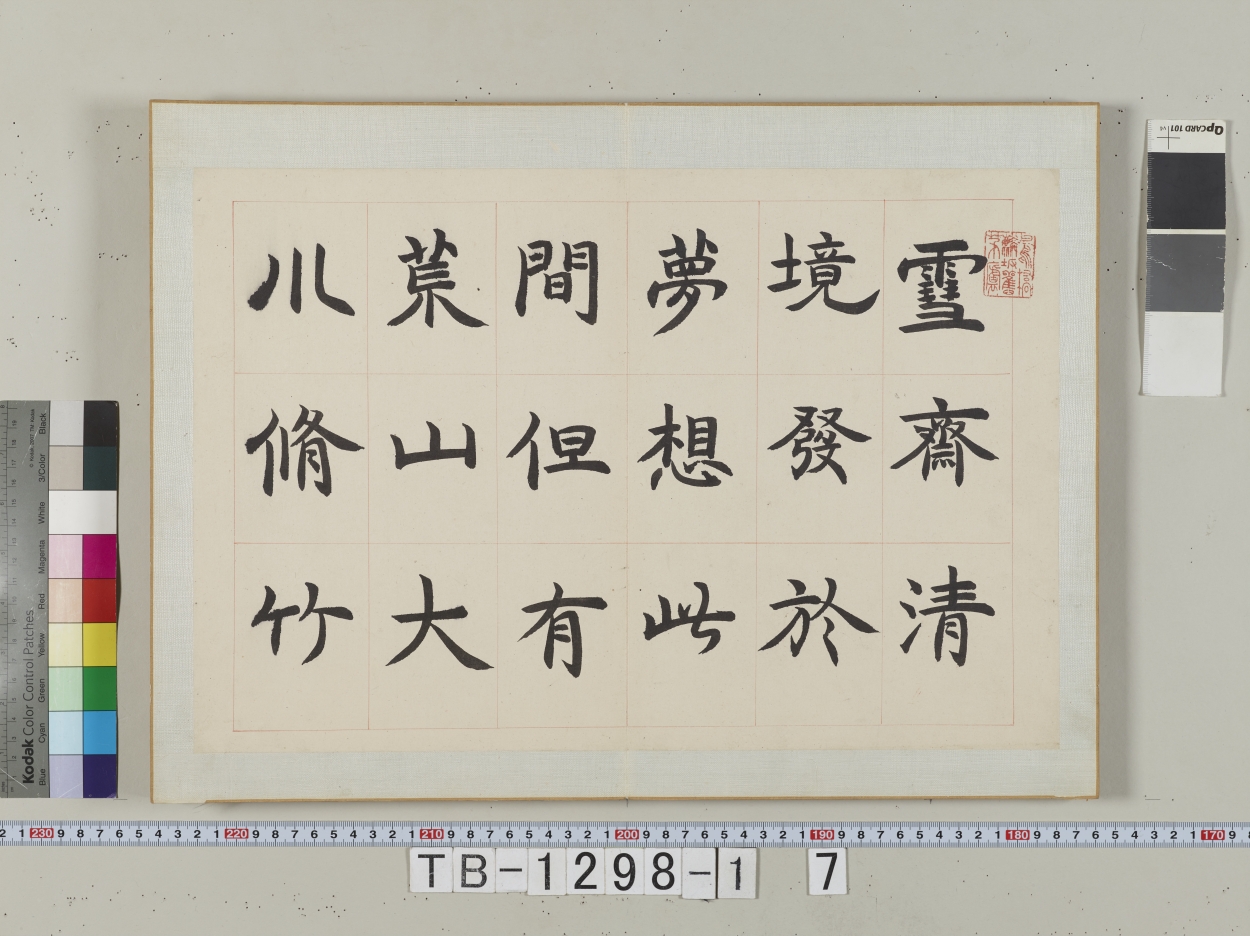 雪齋清
境發於
夢想此
間但有
荒山大
川脩竹
QPCARD 101 v4
Kodak Color Control Patches
© Kodak, 2007 TM: Kodak
Black
3/Color
White
Magenta
Red
Yellow
Green
Cyan
Blue
2 1 230 9 8 7 6 5 4 3 2 1 220 9 8 7 6 5 4 3 2 1 210 9 8 7 6 5 4 3 2 1 200 9 8 7 6 5 4 3 2 1 190 9 8 7 6 5 4 3 2 1 180 9 8 7 6 5 4 3 2 1 170 9 8
TB-1298-1 7